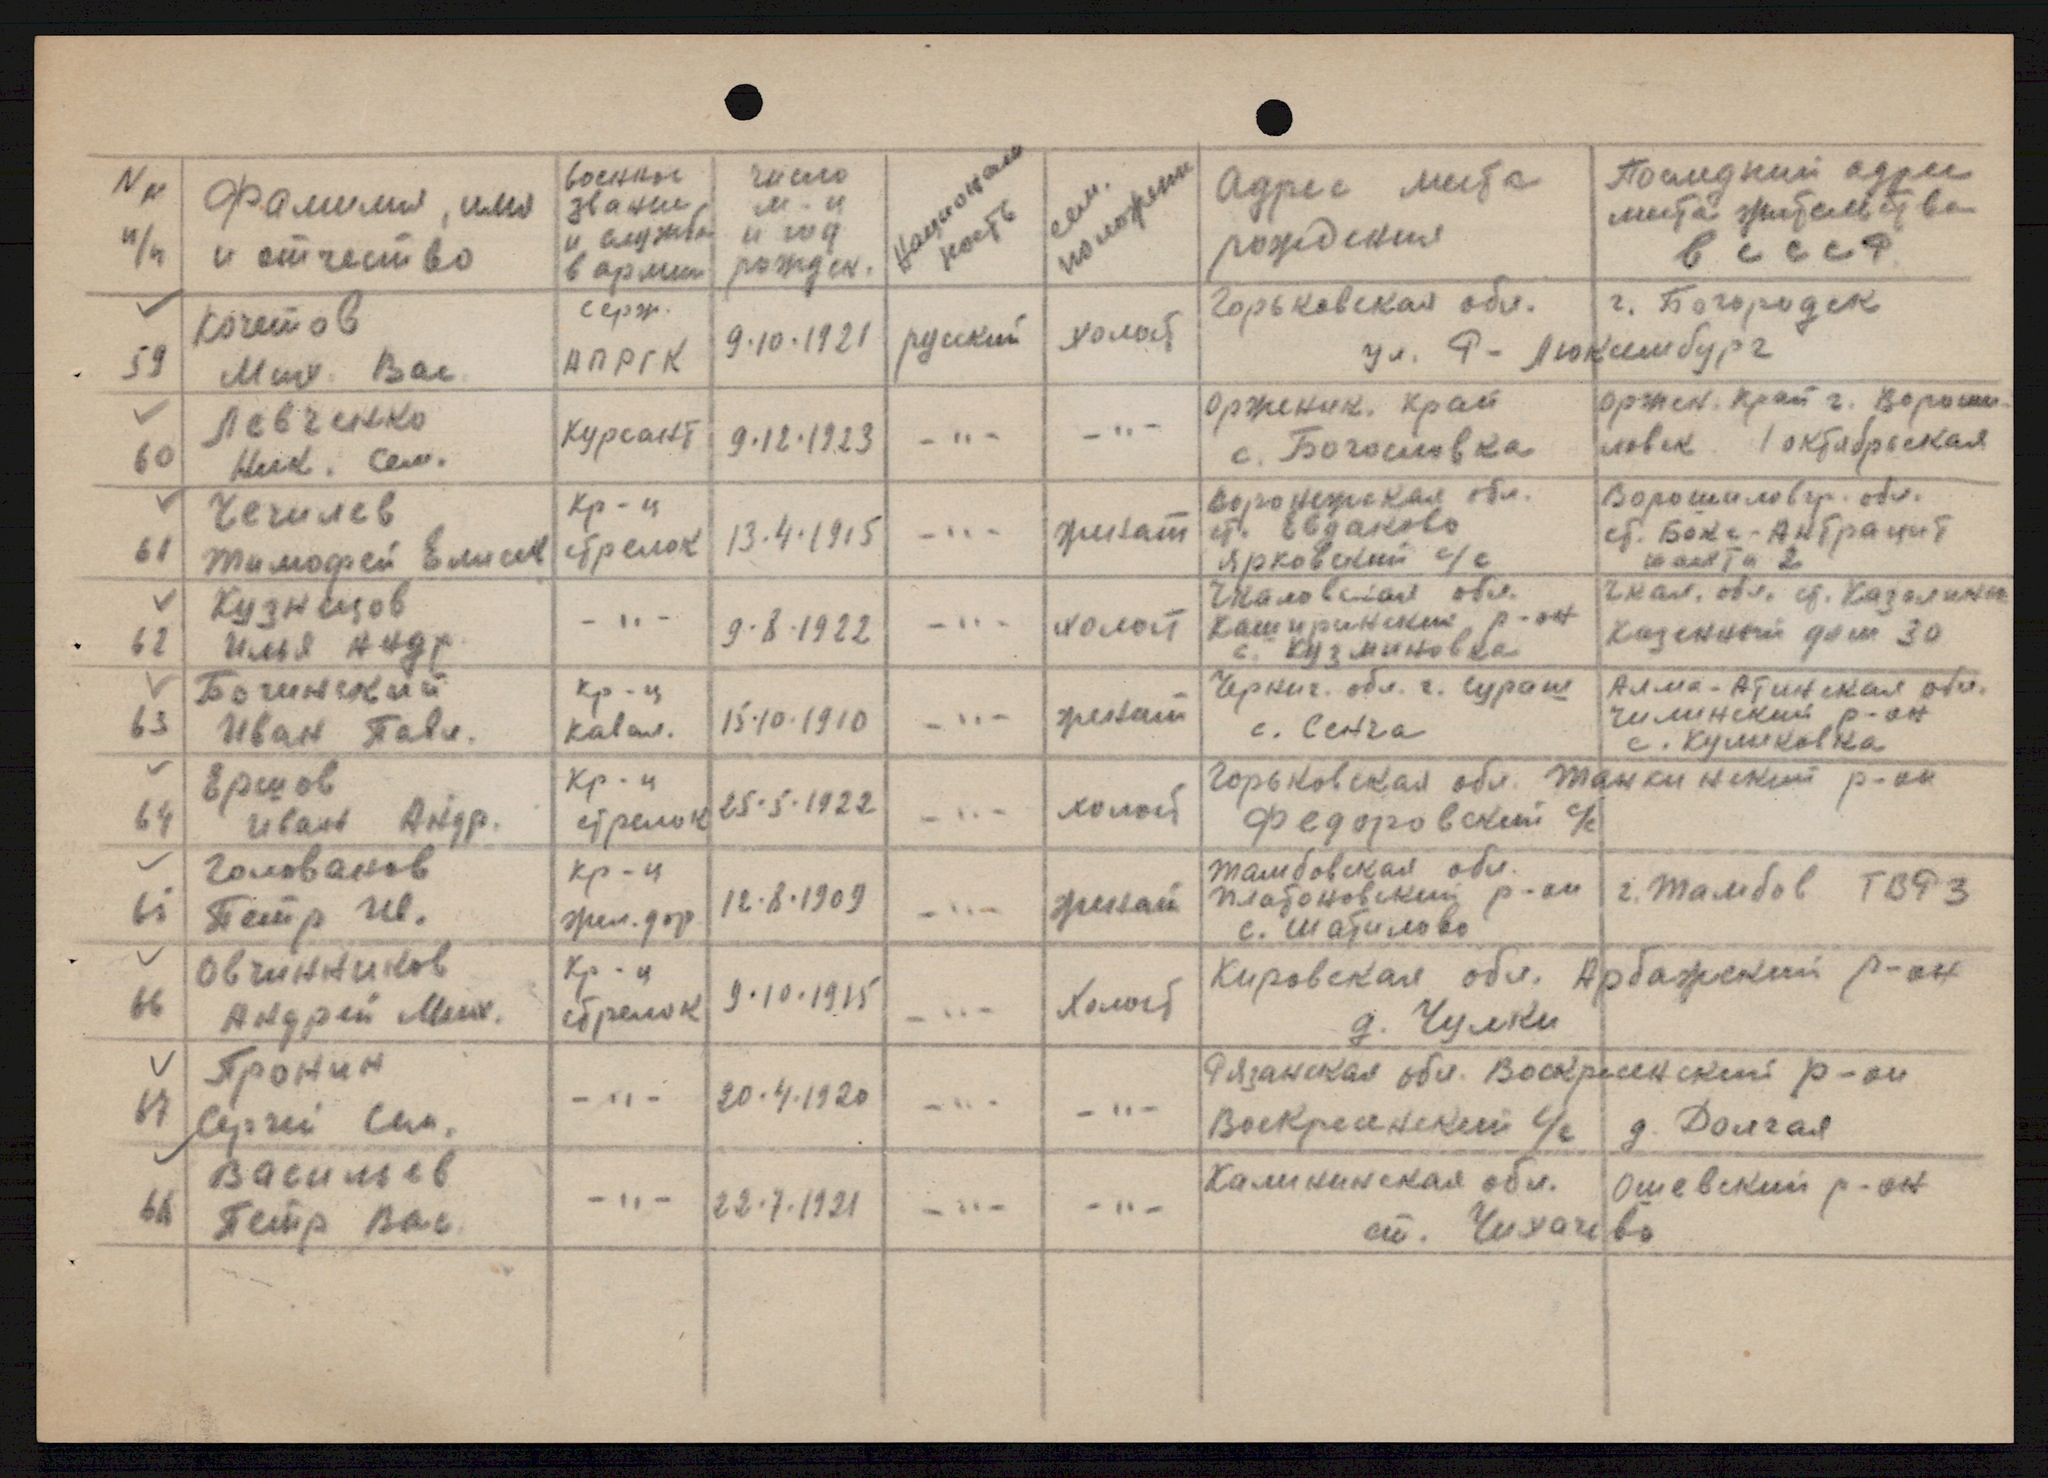 Nн п/п
Фамилия, имя и отчество
военное звание и служба в армии
число м-ц и год рожден.
Националь ность
сем. положени
Адрес места рождения
Последний адрес места жительства в СССР
59 Кочетов Мих. Вас.
серж. АПРГК
9.10.1921
русский
холост
Горьковская обл. г. Богородск
ул. Р-Люксембург
60 Левченко Ник. Сем.
Курсант
9.12.1923
-"-
-"-
Орженик. край с. Богословка
Оржен. край г. Вороши-
ловск 1 октябрьская
61 Чечилев Тимофей Елисе
Кр-ц стрелок
13.4.1915
-"-
женат
Воронежская обл.
ст. Евдаково
Ярковский с/с
Ворошиловгр. обл.
ст. Бокс-Антрацит
шахта 2
62 Кузнецов Илья Андр.
-"-
9.8.1922
-"-
холост
Чкаловская обл.
Каширинский р-он
с. Кузминовка
Чкал. обл. ст. Казалинка
Казенный дом 30
63 Бочинский Иван Павл.
Кр-ц кавал.
15.10.1910
-"-
женат
Черниг. обл. г. Сураж
с. Сенча
Алма-Атинская обл.
Чилинский р-он
с. Куликовка
64 Ершов Иван Андр.
Кр-ц стрелок
25.5.1922
-"-
холост
Горьковская обл. Танкинский р-он
Федоровский с/с
65 Голованов Петр Ив.
Кр-ц жел.дор
12.8.1909
-"-
женат
Тамбовская обл.
Платоновский р-он
с. Шатилово
г. Тамбов ТВРЗ
66 Овчинников Андрей Мих.
Кр-ц стрелок
9.10.1915
-"-
Холост
Кировская обл. Арбажский р-он
д. Чулки
67 Пронин Сергей Сем.
-"-
20.4.1920
-"-
-"-
Рязанская обл. Воскресенский р-он
Воскресенский с/с д. Долгая
68 Васильев Петр Вас.
-"-
22.7.1921
-"-
-"-
Калининская обл. Ошевский р-он
ст. Чихачево